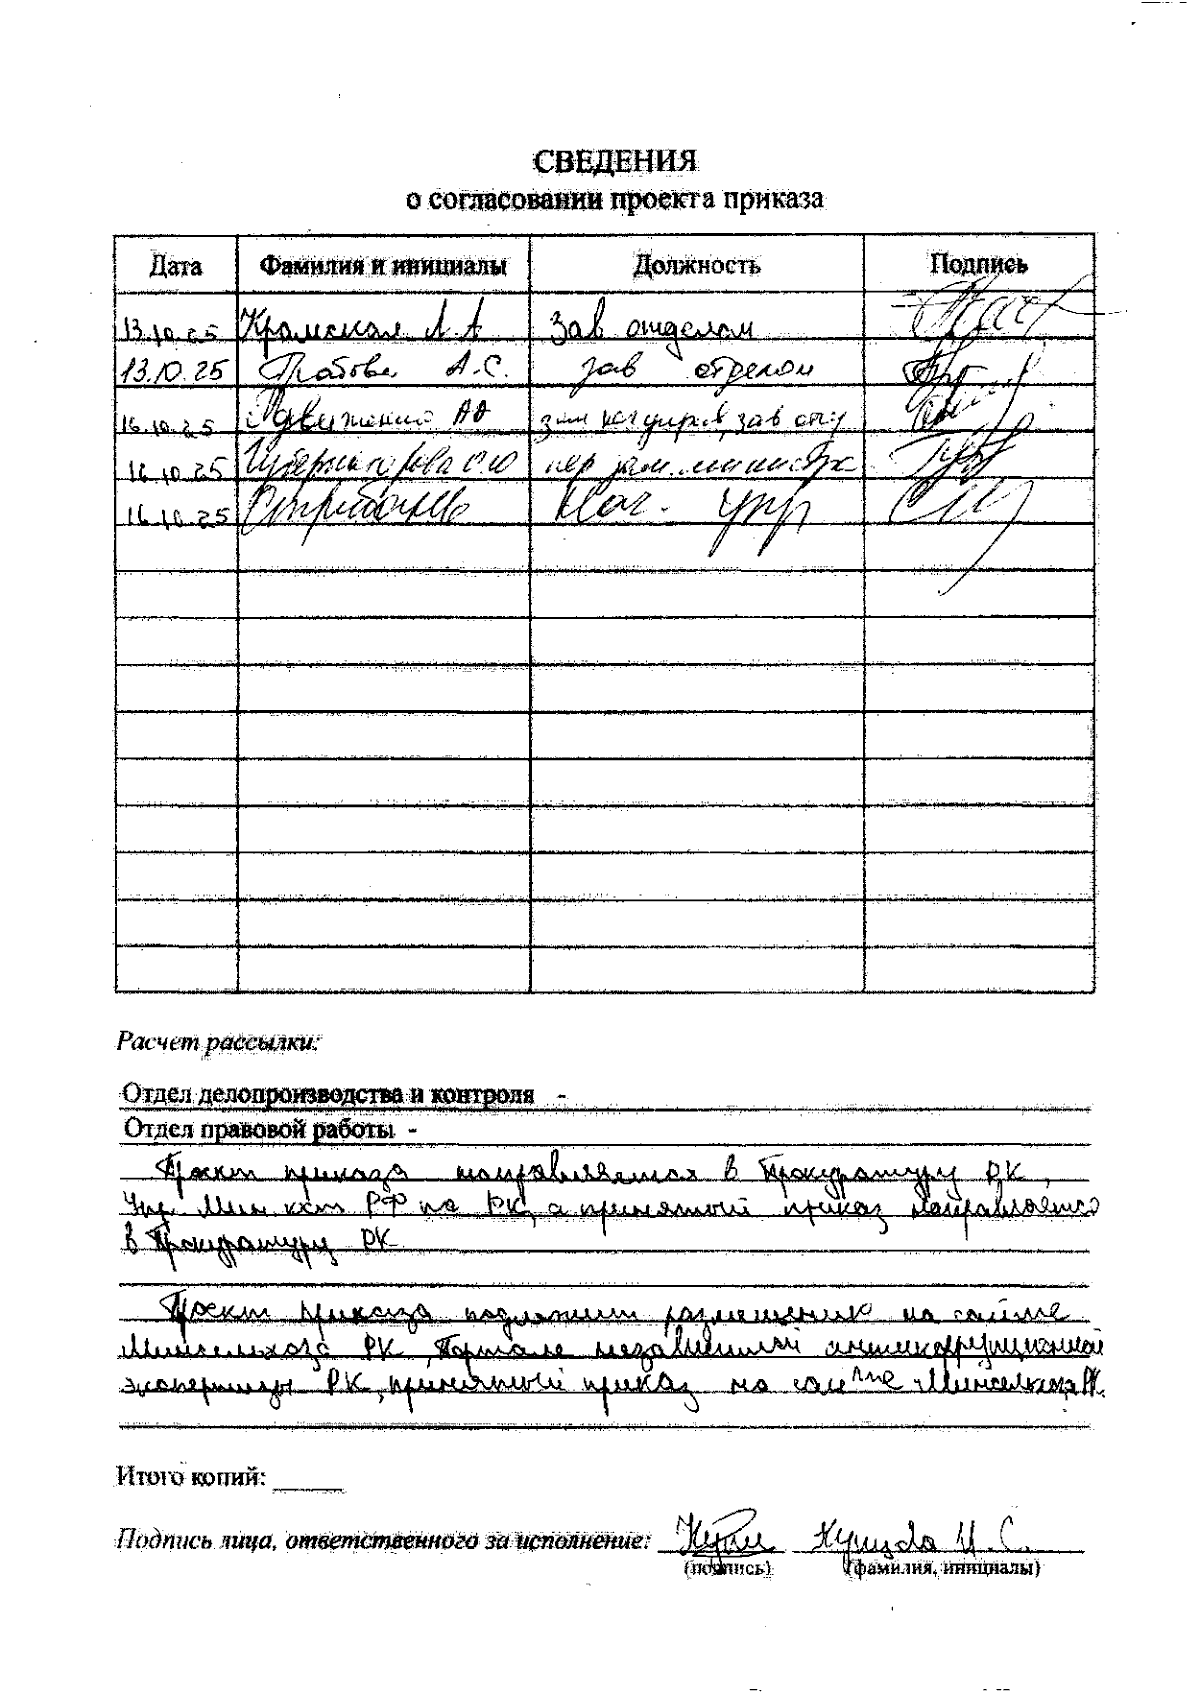 СВЕДЕНИЯ
о согласовании проекта приказа
Дата Фамилия и инициалы Должность Подпись
13.10.25 Крамская Л.А Зав отделом
13.10.25 А.С. зав отделом
16.10.25 АА зам зав
16.10.25 Губернаторова С Ю пер зам. министра
16.10.25 Нач. упр
Расчет рассылки:
Отдел делопроизводства и контроля -
Отдел правовой работы -
Проект приказа направляется в Прокуратуру РК,
Упр. Мин юст РФ по РК, а принятый приказ направляется
в Прокуратуру РК
Проект приказа подлежит размещению на сайте
Минсельхоза РК, Портале независимой антикоррупционной
экспертизы РК, принятый приказ на сайте Минсельхоза РК.
Итого копий:
Подпись лица, ответственного за исполнение: И.С.
(подпись) (фамилия, инициалы)